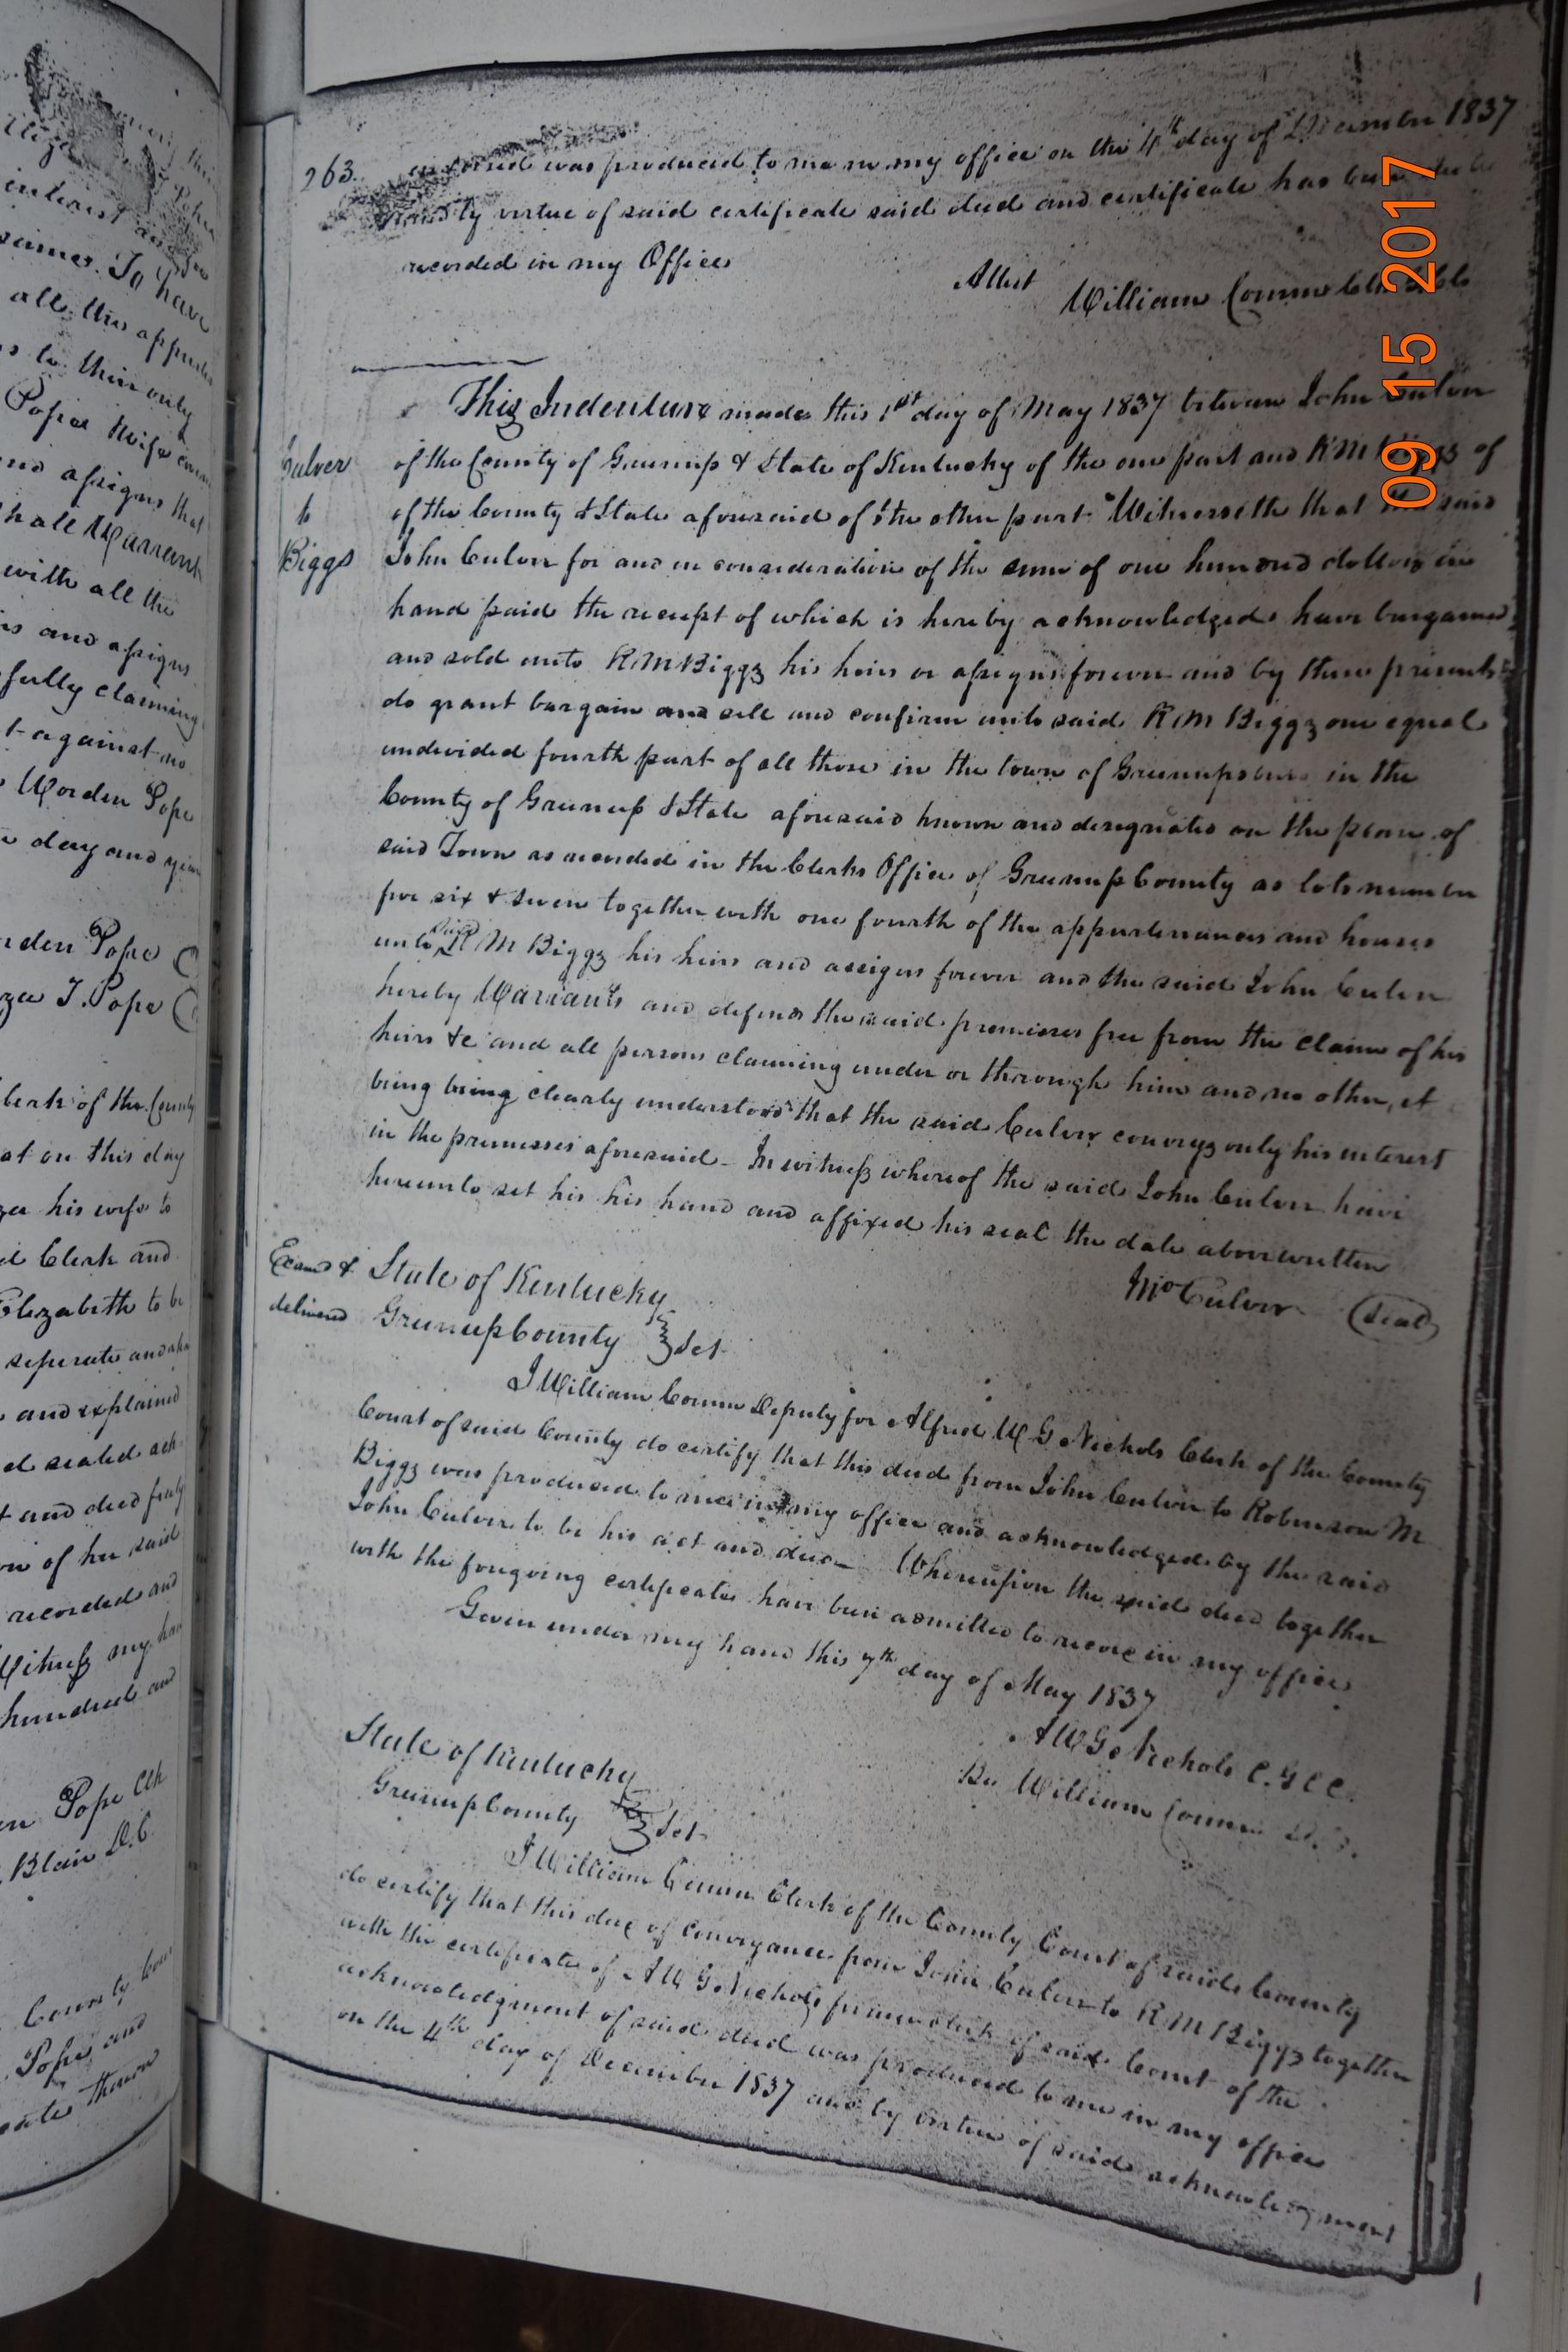 263.
was produced to me in my office on the 4th day of December 1837
by virtue of said certificate said deed and certificate has been
recorded in my Office
Attest
William Conner
This Indenture made this 1st day of May 1837 between John Culver
Culver
of the County of Greenup & State of Kentucky of the one part and R M Biggs of
to
of the County & State aforesaid of the other part Witnesseth that the said
Biggs
John Culver for and in consideration of the sum of one hundred dollars in
hand paid the receipt of which is hereby acknowledged have bargained
and sold unto R M Biggs his heirs or assigns forever and by these presents
do grant bargain and sell and confirm unto said R M Biggs one equal
undivided fourth part of all those in the town of Greenupsburg in the
County of Greenup & State aforesaid known and designated on the plan of
said Town as recorded in the Clerks Office of Greenup County as lots number
six & seven together with one fourth of the appurtenances and houses
unto said R M Biggs his heirs and assigns forever and the said John Culver
hereby Warrants and defends the said premises free from the claim of his
heirs &c and all persons claiming under or through him and no other, it
being being clearly understood that the said Culver conveys only his interest
in the premises aforesaid - In witness whereof the said John Culver have
hereunto set his his hand and affixed his seal the date above written
Jno Culver (Seal)
Examd &
delivered
State of Kentucky
Greenup County } Sct
I William Conner Deputy for Alfred W G Nichols Clerk of the County
Court of said County do certify that this deed from John Culver to Robinson M
Biggs was produced to me in my office and acknowledged by the said
John Culver to be his act and deed - Whereupon the said deed together
with the foregoing certificate have been admitted to record in my office
Given under my hand this 7th day of May 1837
A W G Nichols C. G C C.
By William Conner D.C.
State of Kentucky
Greenup County } Sct
I William Conner Clerk of the County Court of said County
do certify that this deed of conveyance from John Culver to R M Biggs together
with the certificate of A W G Nichols former clerk of said Court of the
acknowledgment of said deed was produced to me in my office
on the 4th day of December 1837 and by virtue of said acknowledgment
09 15 2017
interest and
same. To have
all the
to their only
Pope & wife
and assigns that
shall Warrant
with all the
and assigns
fully claiming
against
Worden Pope
day and year
Pope
T. Pope
Clerk of the County
at on this day
his wife to
Clerk and
Elizabeth to be
separate and
and explained
sealed
and deed
of her said
recorded and
Witness my hand
hundred and
Pope Clk
Blain D.C.
County
Pope and
thereon